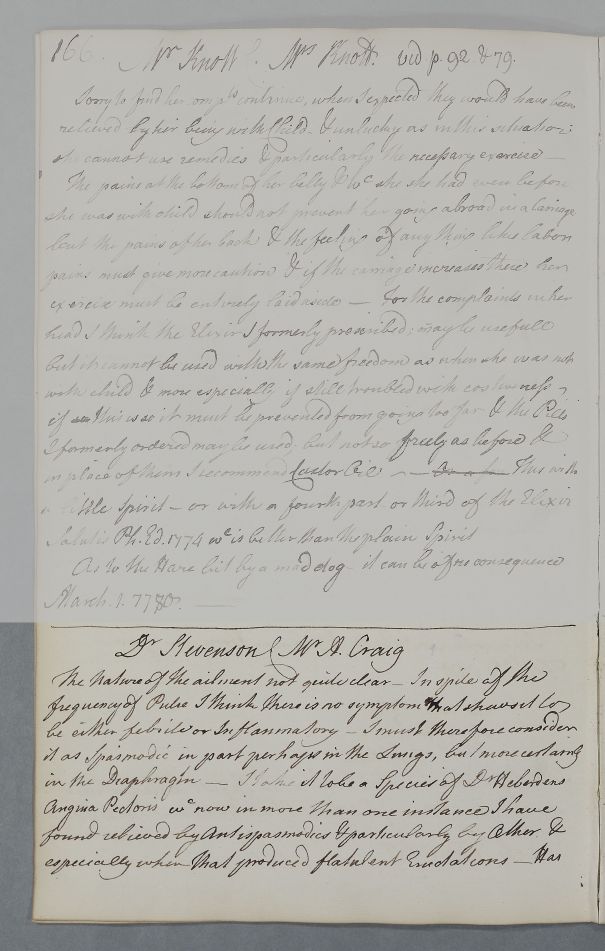 166. Mr Knott. Mrs Knott. vid p. 92 & 79.
Sorry to find her complts continue, when I expected they would have been
relieved by her being with Child. & unlucky as in this situation
she cannot use remedies & particularly the necessary exercise —
The pains at the bottom of her belly & wc she she had even before
she was with child should not prevent her going abroad in a carriage
but the pains of her back & the feeling of any thing like labor
pains must give more caution & if the carriage increases these her
exercise must be entirely laid aside — For the complaints in her
head I think the Elixir I formerly prescribed, may be usefull
but it cannot be used with the same freedom as when she was not
with child & more especially if still troubled with costiveness,
if this is so it must be prevented from going too far & the Pills
I formerly ordered may be used, but not so freely as before &
in place of them I recommend Castor Oil — This with
a little Spirit — or with a fourth part or third of the Elixir
Salutis Ph. Ed. 1774 wc is better than the plain Spirit
As to the Hare bit by a mad dog — it can be of no consequence
March. 1. 1780. —
Dr Stevenson Mr A. Craig
The Nature of the ailment not quite clear — In spite of the
frequency of Pulse I think there is no symptom that shews it to
be either febrile or Inflammatory — I must therefore consider
it as Spasmodic in part perhaps in the Lungs, but more certainly
in the Diaphragm — I take it to be a Species of Dr Heberdens
Angina Pectoris wc now in more than one instance I have
found relieved by Antispasmodics & particularly by Æther. &
especially when that produced flatulent Eructations — Has